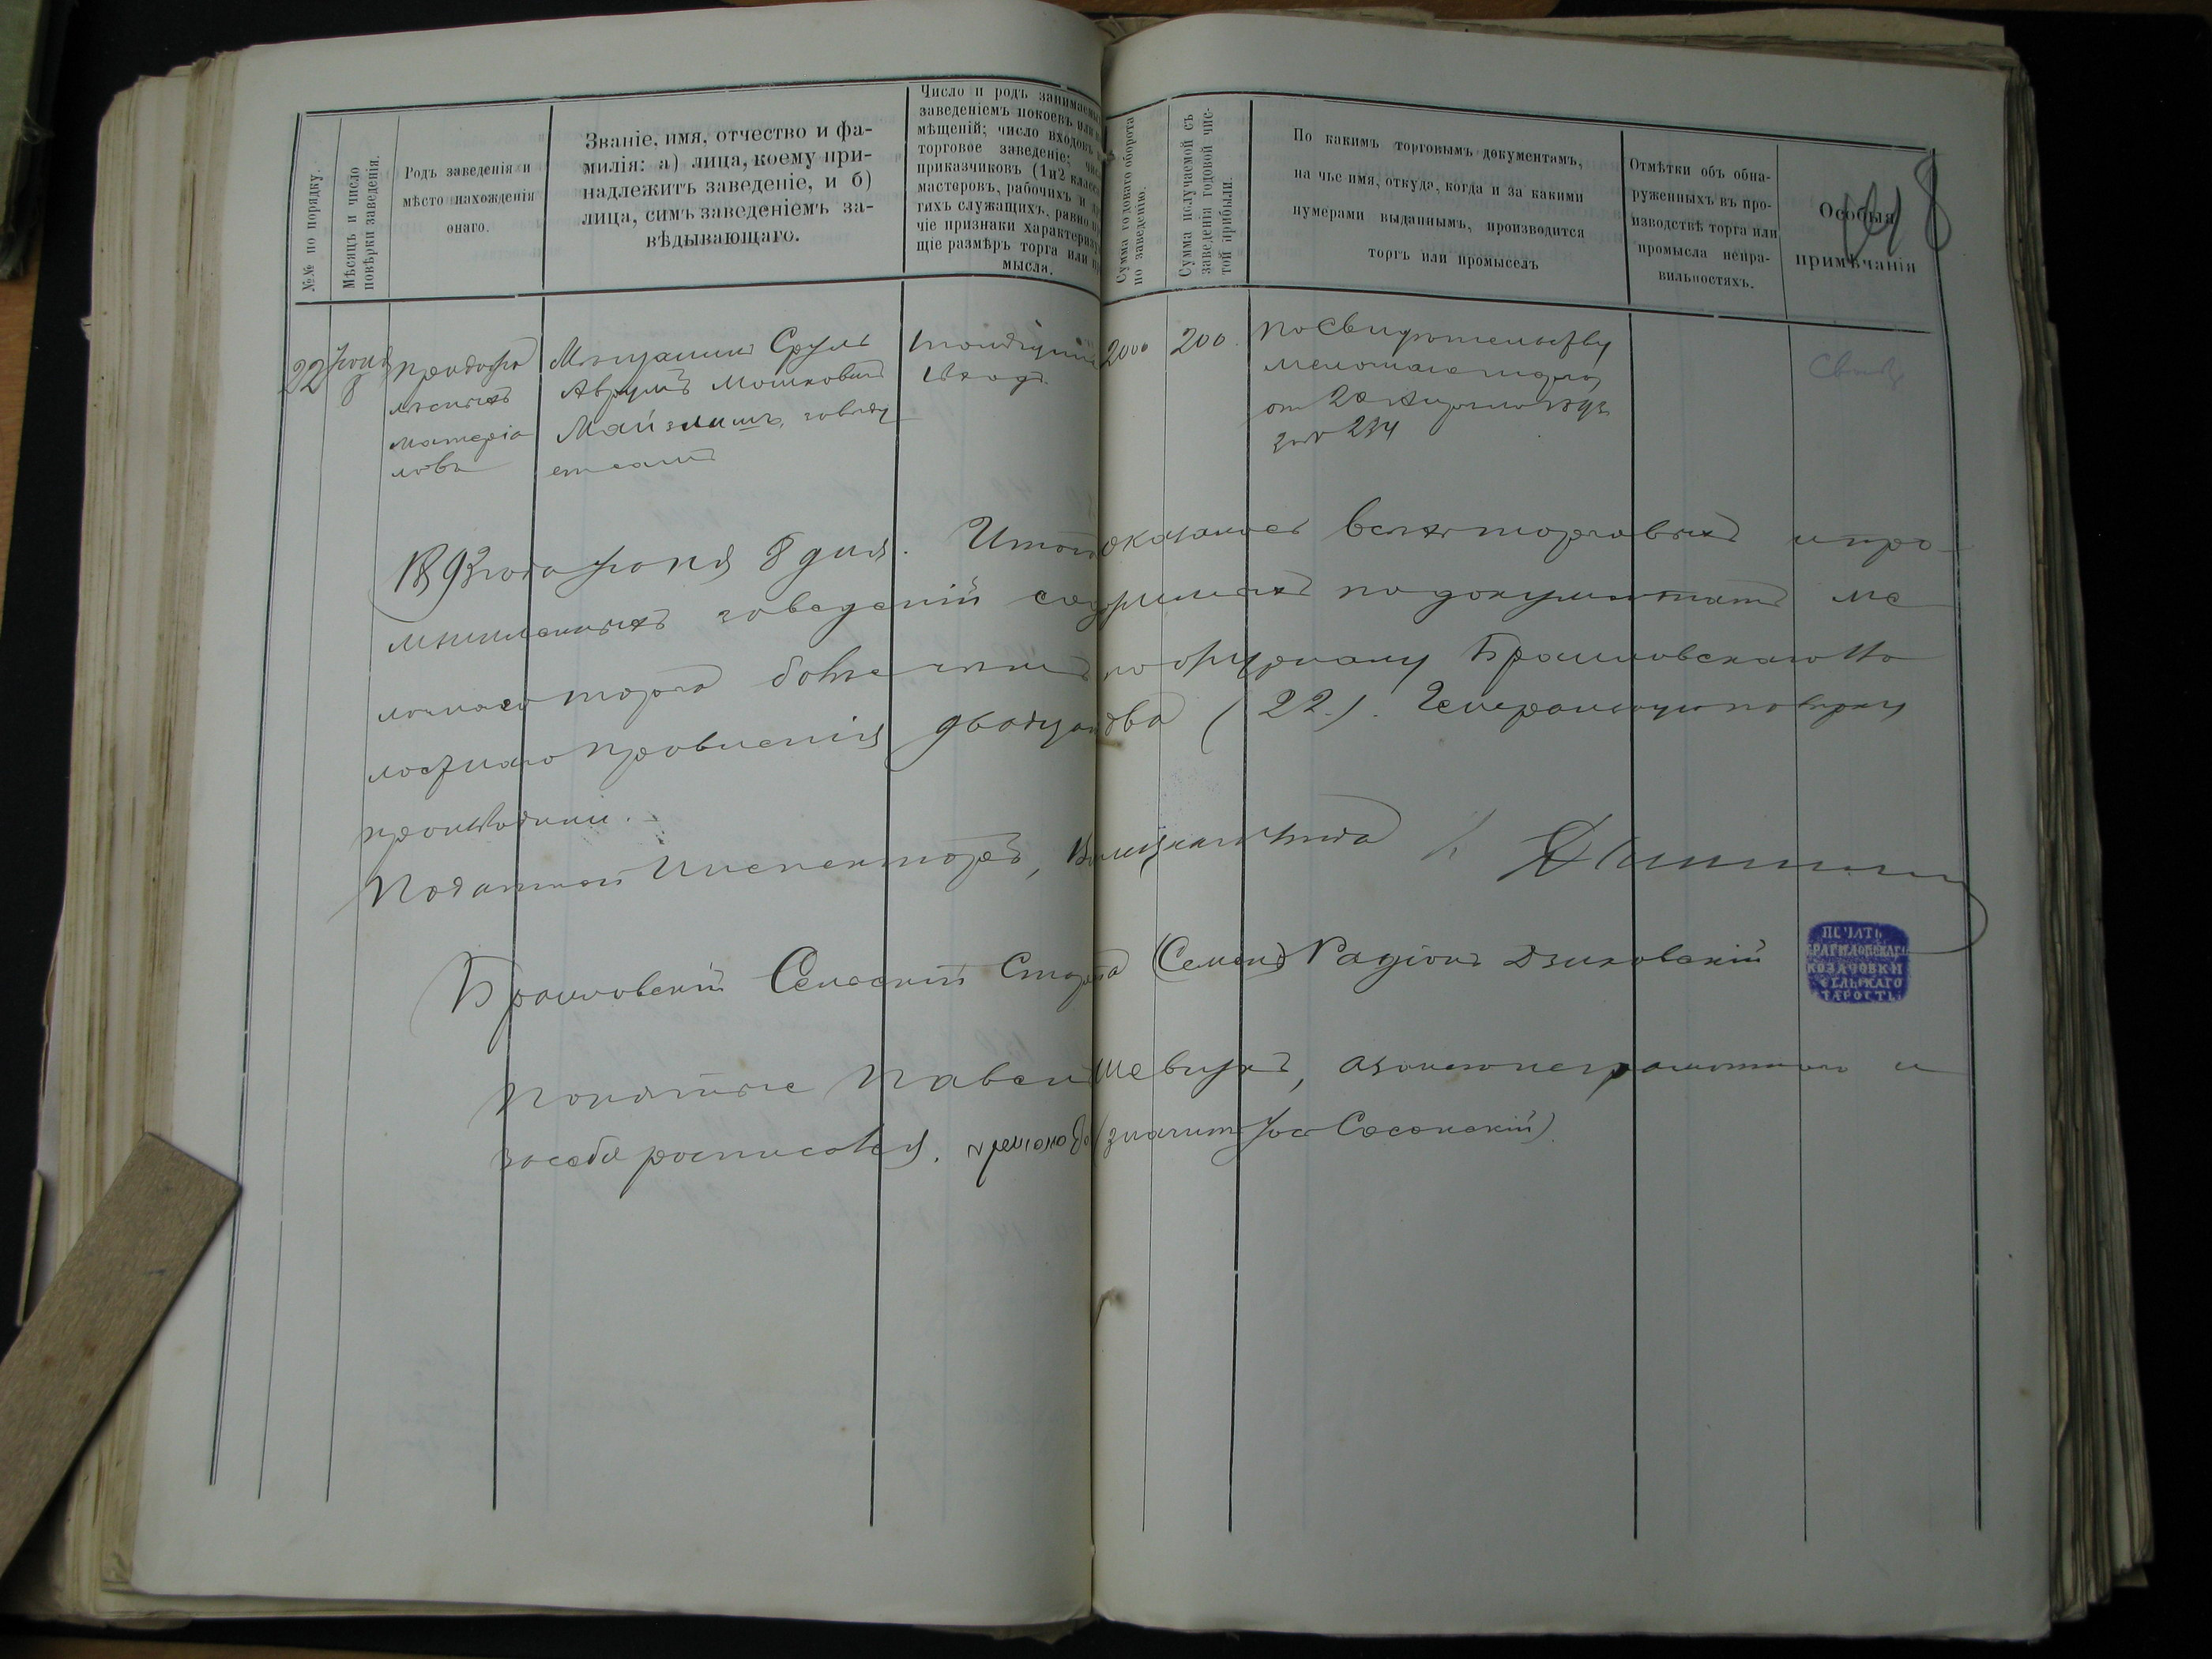 №№ по порядку.
Мѣсяцъ и число
повѣрки заведенія.
Родъ заведенія и
мѣсто нахожденія
онаго.
Званіе, имя, отчество и фа-
милія: а) лица, коему при-
надлежитъ заведеніе, и б)
лица, симъ заведеніемъ за-
вѣдывающаго.
Число и родъ занимаемы
заведеніемъ покоевъ или
мѣщеній; число входовъ
торговое заведеніе;
приказчиковъ (1 и 2 класс
мастеровъ, рабочихъ и
гихъ служащихъ, равно
чіе признаки характериз
щіе размѣръ торга или
мысла.
Сумма годоваго оборота
по заведенію.
Сумма получаемой съ
заведенія годовой чис-
той прибыли.
По какимъ торговымъ документамъ,
на чье имя, откуда, когда и за какими
нумерами выданнымъ, производится
торгъ или промыселъ
Отмѣтки объ обна-
руженныхъ въ про-
изводствѣ торга или
промысла непра-
вильностяхъ.
Особыя
примѣчанія
22 Іюня 8
продажа
лѣсныхъ
матеріа
ловъ
Мѣщанинъ Сруль
Аврумъ Мошковичъ
Майзлишъ, завѣду
етъ самъ
1 входъ
2000
200.
По Свидѣтельству
мелочнаго торга
от 20 1892
за № 234
1893 года Іюня 8 дня. Итого оказалось всѣхъ торговыхъ и про
мышленныхъ заведеній содержимыхъ по документамъ ме
лочнаго торга болѣе чѣмъ Браиловскаго Во
лостнаго Правленія двадцать два (22). Генеральную повѣрку
производили.
Податной Инспекторъ, Винницкаго уѣзда
Браиловскій Сельскій Староста (Семенъ) Радіонъ Дзиковскій
ПЕЧАТЬ
БРАИЛОВСКАГО
КОЗАЧОВКИ
СЕЛЬСКАГО
СТАРОСТЫ
Понятые Павелъ Шевчукъ, а за него неграмотнаго и
за себя росписался.